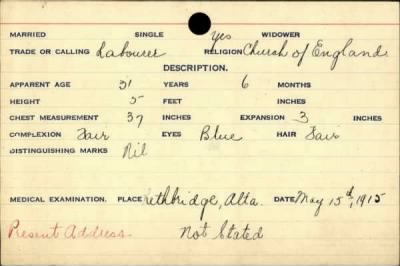 MARRIED SINGLE Yes WIDOWER
TRADE OR CALLING Labourer RELIGION Church of England
DESCRIPTION.
APPARENT AGE 31 YEARS 6 MONTHS
HEIGHT 5 FEET INCHES
CHEST MEASUREMENT 37 INCHES EXPANSION 3 INCHES
COMPLEXION Fair EYES Blue HAIR Fair
DISTINGUISHING MARKS Nil
MEDICAL EXAMINATION. PLACE Lethbridge, Alta. DATE May 15th, 1915
Present Address Not Stated